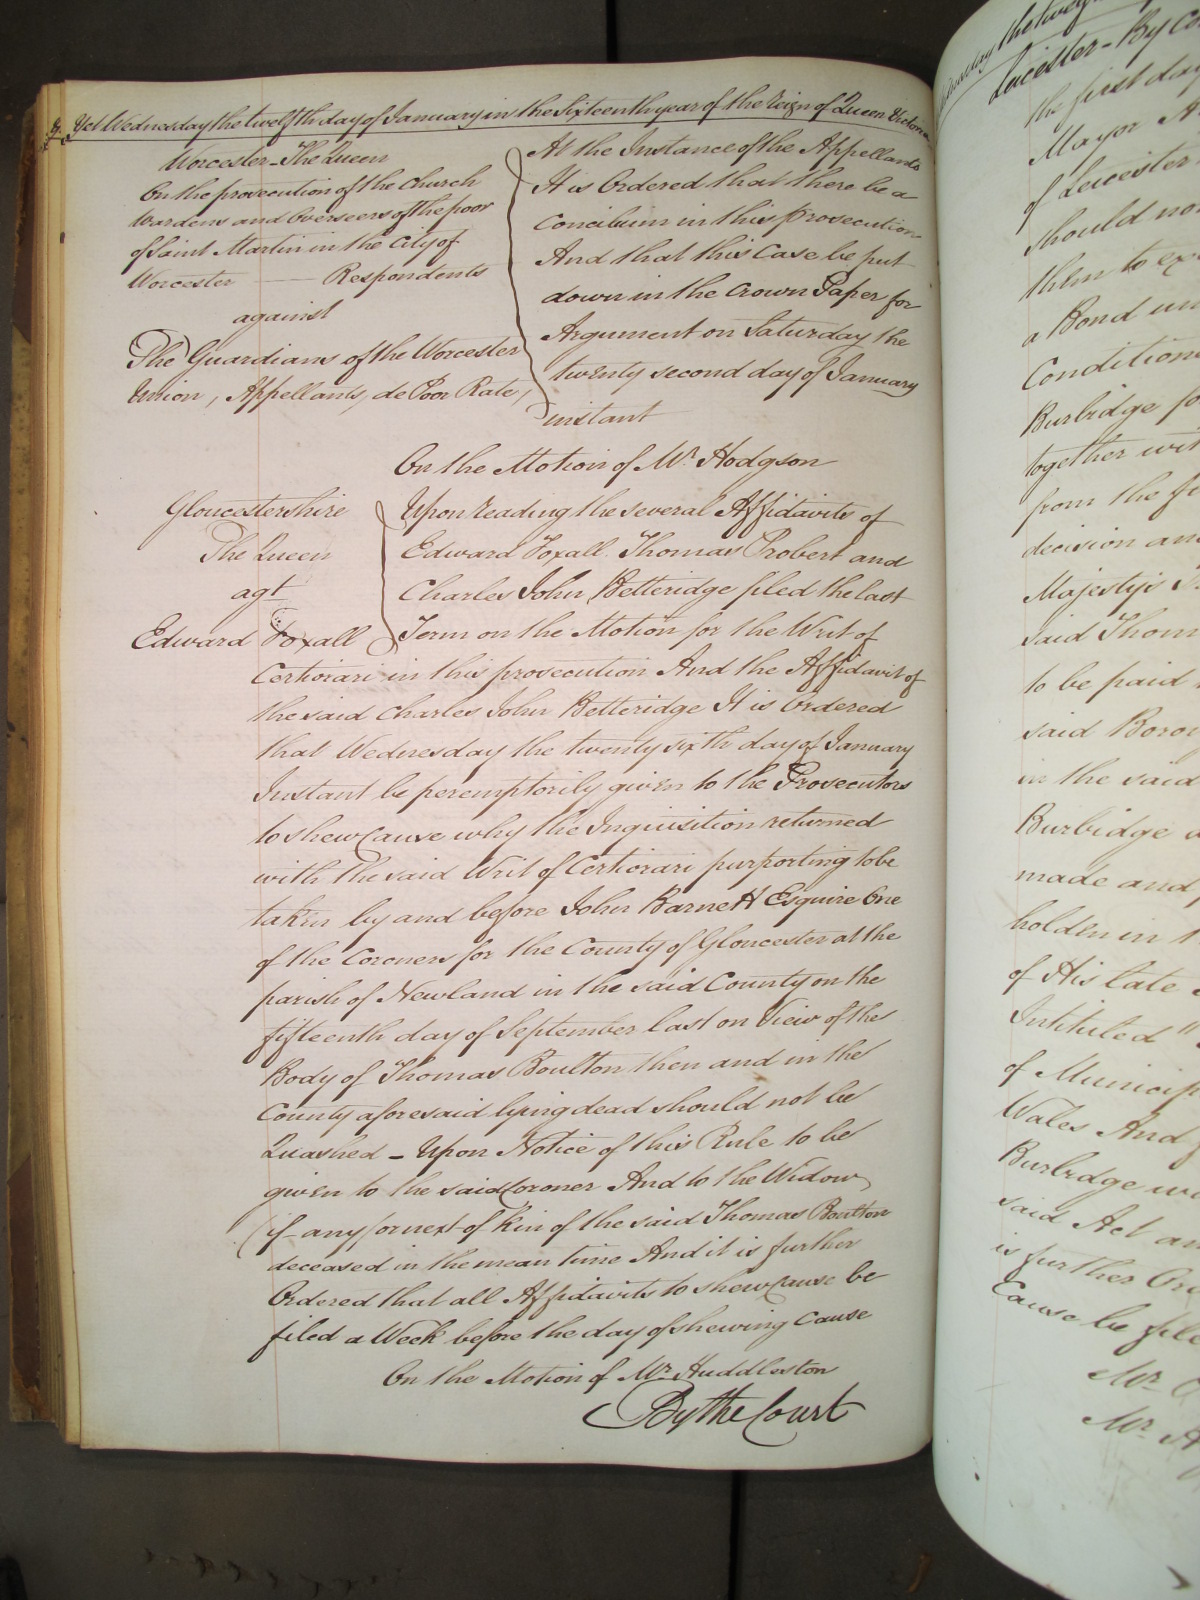 Yet Wednesday the twelfth day of January in the Sixteenth year of the Reign of Queen Victoria
Worcester - The Queen
On the prosecution of the Church
Wardens and Overseers of the poor
of Saint Martin in the City of
Worcester — Respondents
against
The Guardians of the Worcester
Union, Appellants, de Poor Rate,
At the Instance of the Appellants
It is Ordered that there be a
Concilium in this prosecution
And that this Case be put
down in the Crown Paper for
Argument on Saturday the
twenty second day of January
instant
On the Motion of Mr. Hodgson
Gloucestershire
The Queen
agt
Edward Foxall
Upon reading the several Affidavits of
Edward Foxall Thomas Probert and
Charles John Betteridge filed the last
Term on the Motion for the Writ of
Certiorari in this prosecution And the Affidavit of
the said Charles John Betteridge It is Ordered
that Wednesday the twenty sixth day of January
Instant be peremptorily given to the Prosecutors
to shew Cause why the Inquisition returned
with the said Writ of Certiorari purporting to be
taken by and before John Barnett Esquire One
of the Coroners for the County of Gloucester at the
parish of Newland in the said County on the
fifteenth day of September last on View of the
Body of Thomas Boulton then and in the
County aforesaid lying dead should not be
Quashed - Upon Notice of this Rule to be
given to the said Coroner And to the Widow
(if any) or next of kin of the said Thomas Boulton
deceased in the mean time And it is further
Ordered that all Affidavits to shew Cause be
filed a Week before the day of shewing Cause
On the Motion of Mr. Huddleston
By the Court
Leicester - By
the first day
Mayor
of Leicester
should no
them to
a Bond
Condition
Burbidge
together
from the
decision
Majesty's
said Thom
to be paid
said Borou
in the said
Burbidge
made and
holden in
of His late
Intituled
of Municip
Wales And
Burbidge
said Act
is further
Cause be file
Mr.
Mr.